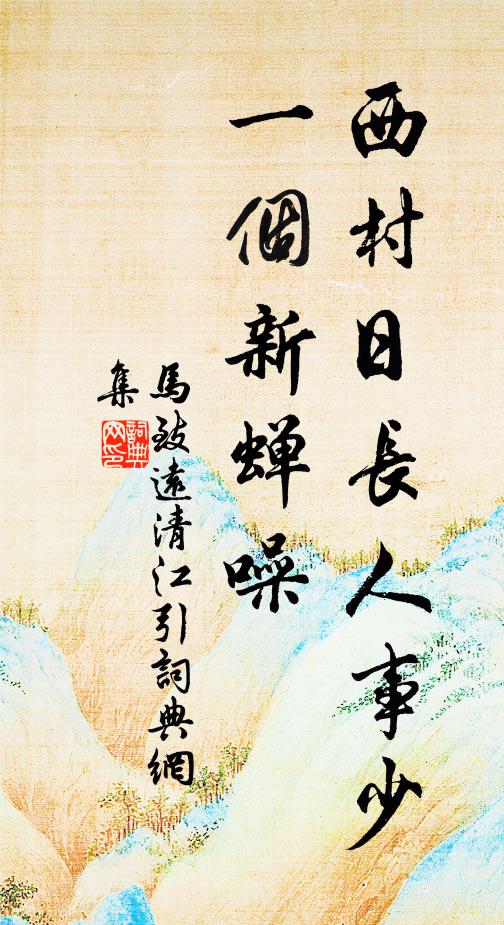 西村日長人事少
一個新蟬噪
馬致遠清江引詞典網
集
詞典网印